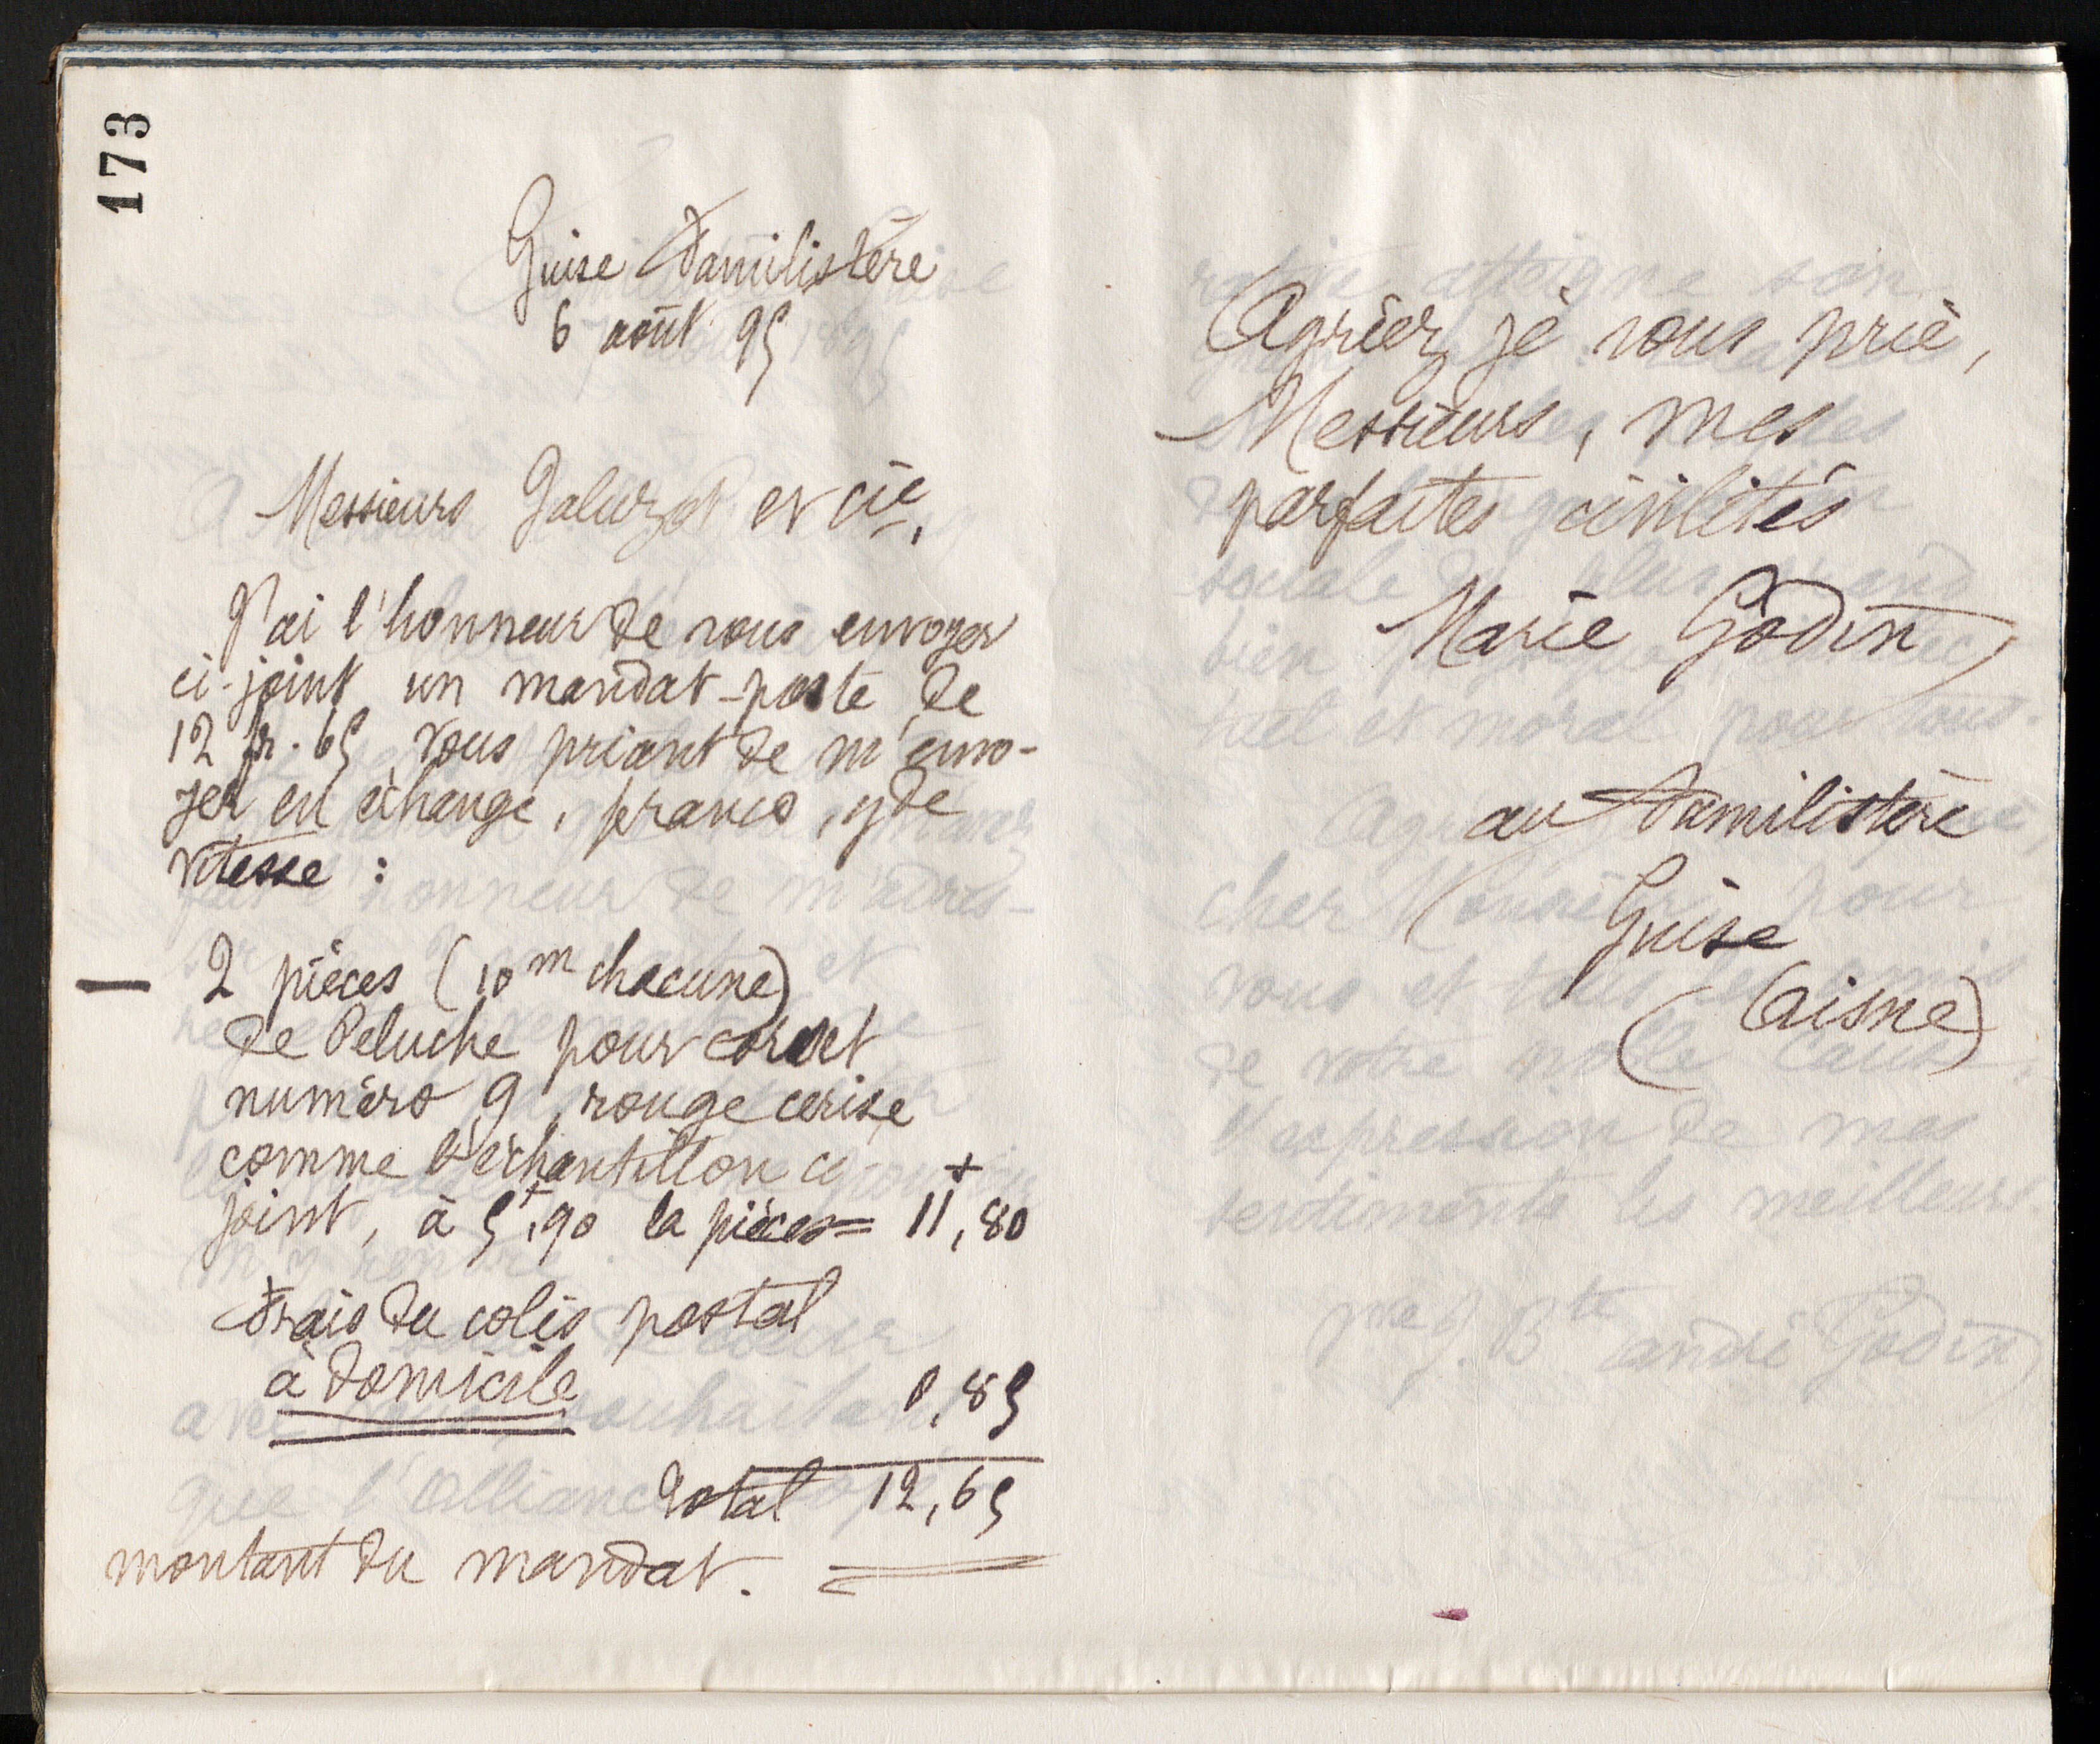 173
Guise Familistère
6 août 95
Messieurs Jaluzot et Cie.
J'ai l'honneur de vous envoyer
ci-joint un mandat-poste de
12 fr. 65 vous priant de m'envo-
yer en échange, franco, gde
vitesse :
2 pièces (10m chacune)
de Peluche pour corset
numéro 9, rouge cerise
comme l'échantillon ci-
joint, à 5f,90 la pièce = 11f,80
Frais du colis postal
à domicile 0,85
Total 12,65
montant du mandat.
Agréez, je vous prie,
Messieurs, mes
parfaites civilités
Marie Godin
au Familistère
Guise
(Aisne)